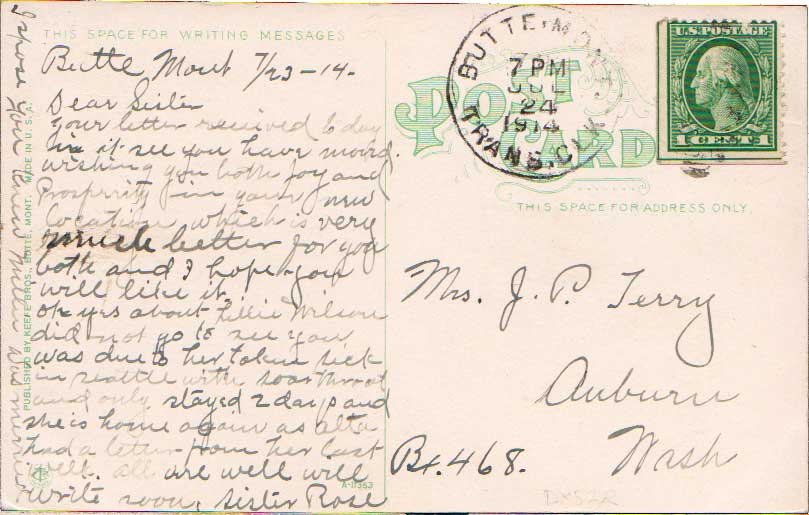 THIS SPACE FOR WRITING MESSAGES
Butte Mont 7/23-14.
Dear Sister
your letter received to day
in it see you have moved.
wishing you both joy and
Prosprity in your new
location which is very
much better for you
both and I hope you
will like it.
oh yes about Lillie Wilson
did not go to see you
was due to her taken sick
in seattle with soar throat
and only stayed 2 days and
she is home again as alta
had a letter from her last
well. all are well will
write soon, Sister Rose
I spose you knew was married
PUBLISHED BY KEEFE BROS., BUTTE, MONT. MADE IN U.S.A.
A-11363
POST CARD
BUTTE, MONT.
7 PM
JUL
24
1914
TRANS. CLK
U.S. POSTAGE
1 CENT 1
THIS SPACE FOR ADDRESS ONLY.
Mrs. J. P. Terry
Auburn
Wash
Bx. 468.